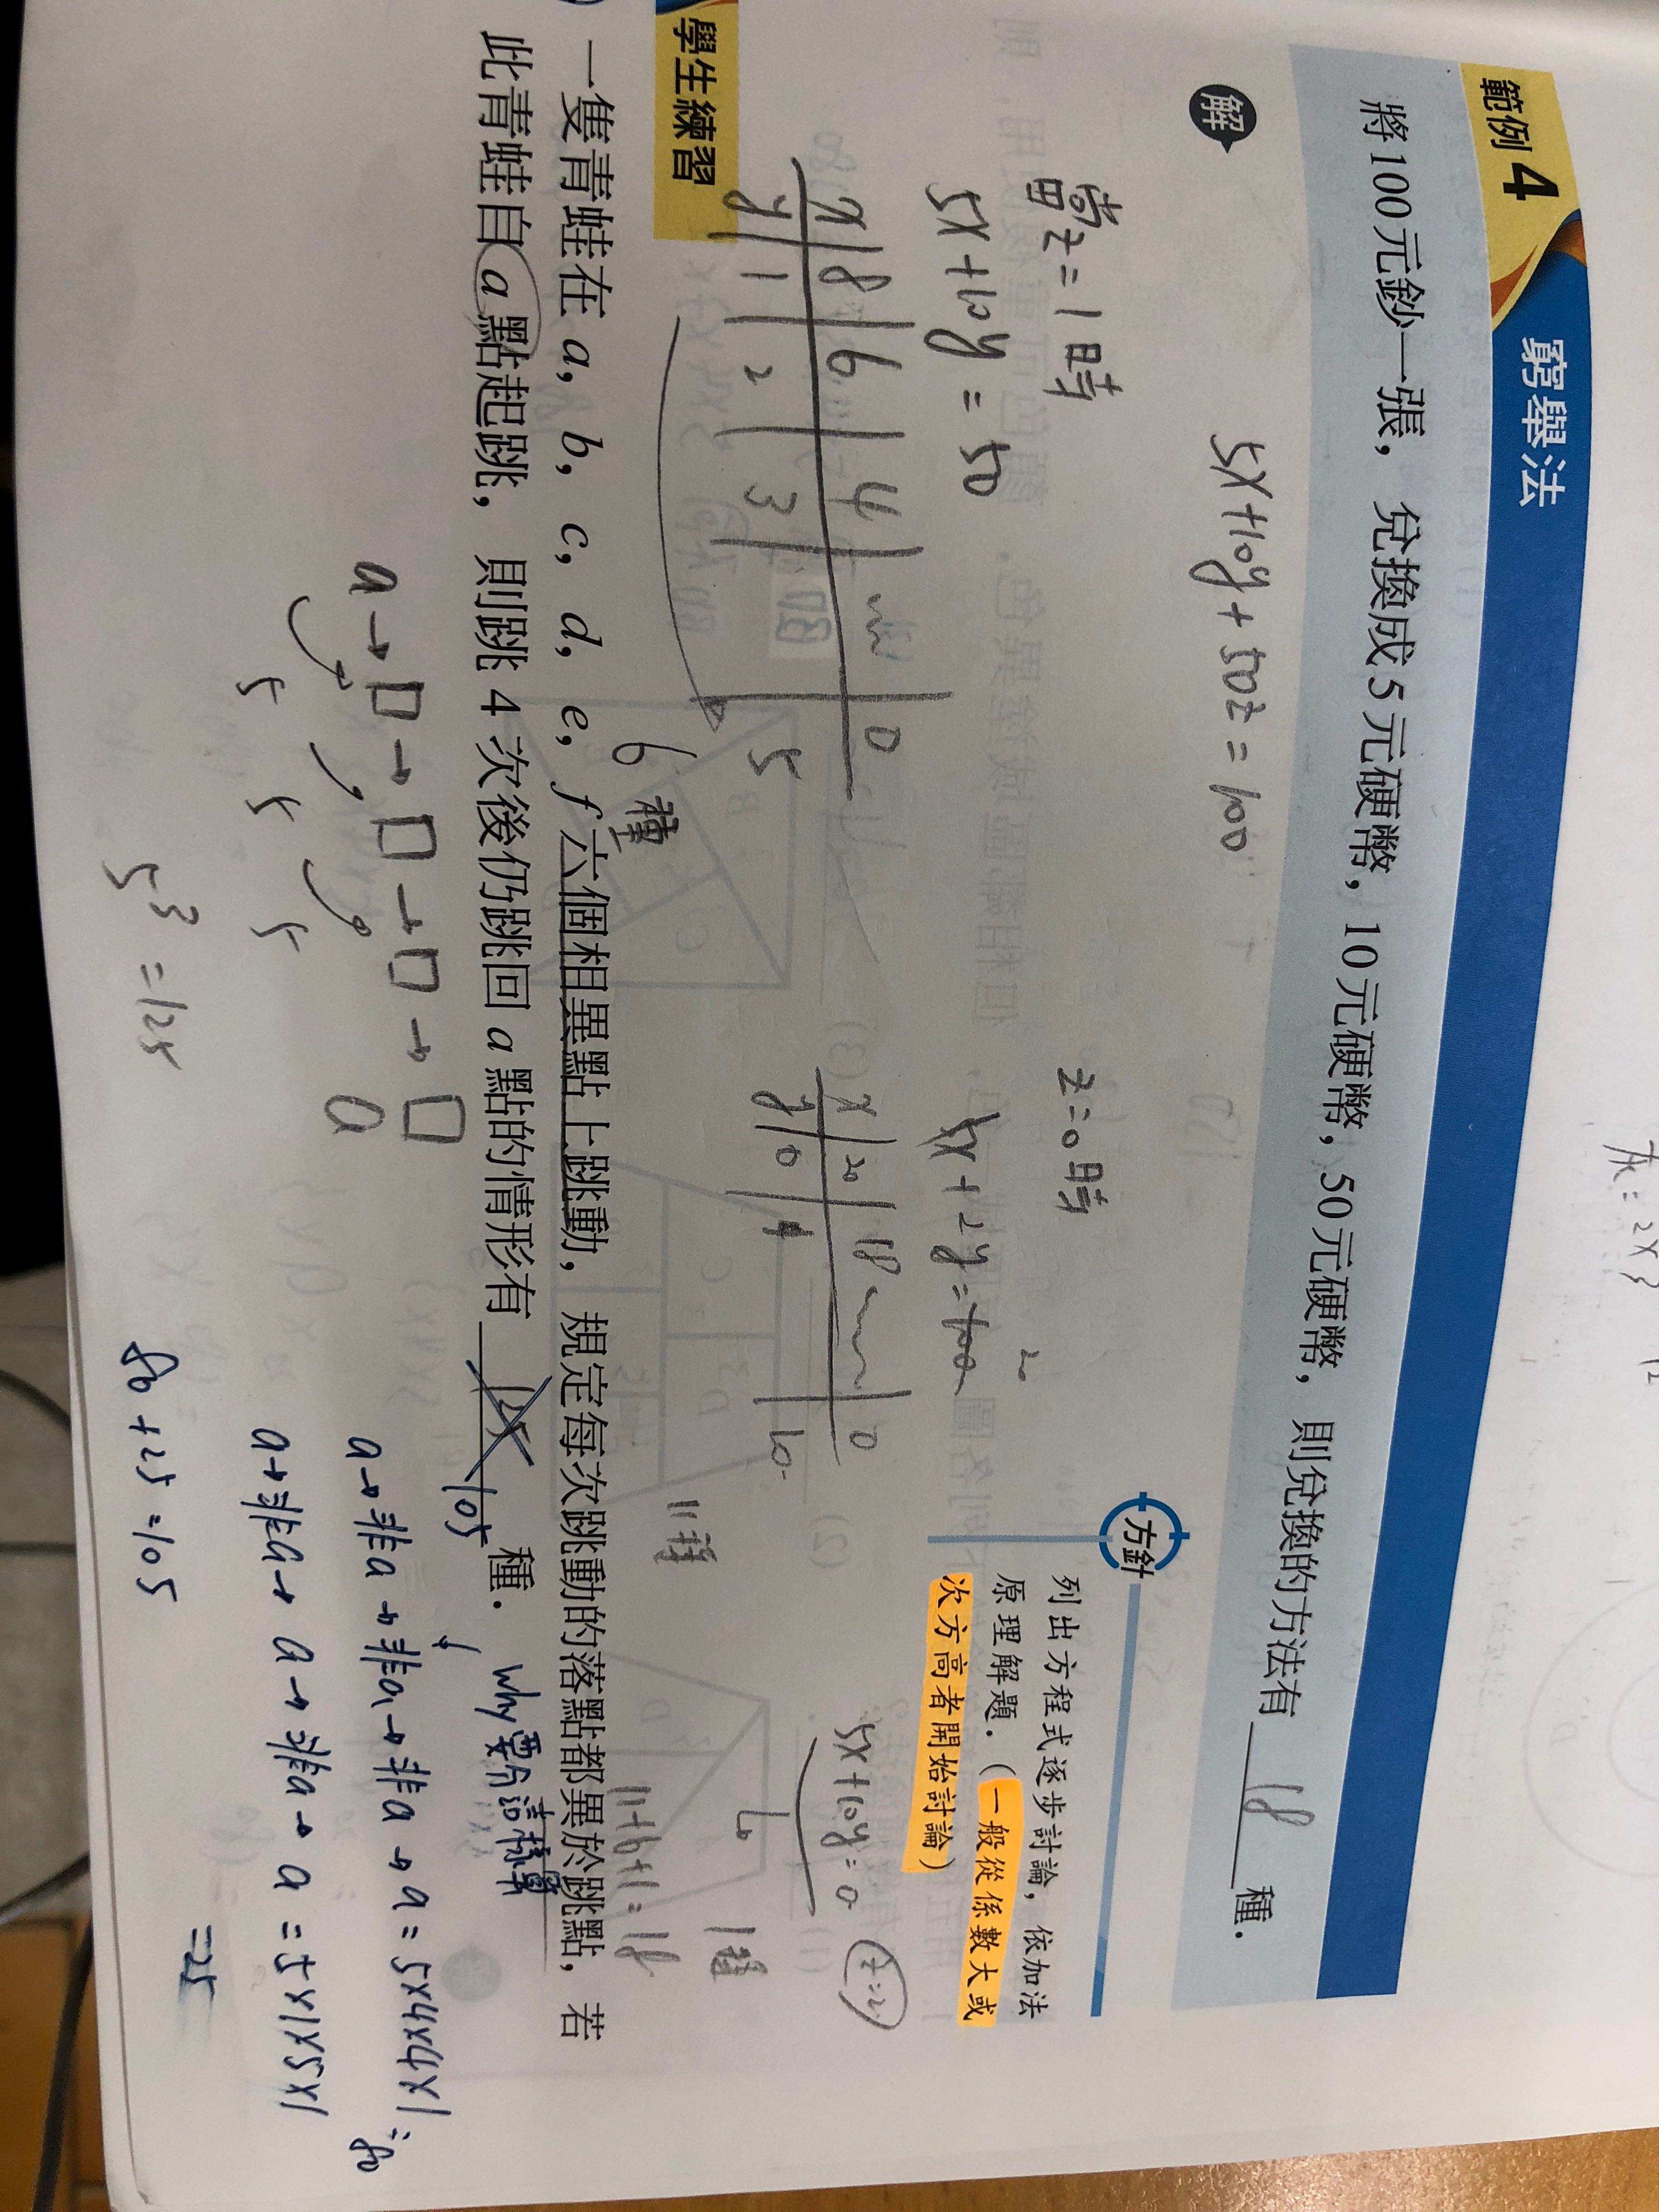 範例4 窮舉法
將100元鈔一張，兌換成5元硬幣，10元硬幣，50元硬幣，則兌換的方法有 18 種．
解
5x+10y+50z=100
方針
列出方程式逐步討論，依加法
原理解題．（一般從係數大或
次方高者開始討論）
當z=1時
5x+10y=50
x 8 6 4 0
y 1 2 3 5
6種
z=0時
x+2y=20
x 20 18 0
y 0 1 10
11種
5x+10y=0
z=2
1種
11+6+1=18
學生練習
一隻青蛙在 a, b, c, d, e, f 六個相異點上跳動，規定每次跳動的落點都異於跳點，若
此青蛙自 a 點起跳，則跳 4 次後仍跳回 a 點的情形有 125 105 種．
why要分這樣算
a→□→□→□→□
a
5 5 5
5³=125
a→非a→非a→非a→a=5x4x4x1=80
a→非a→a→非a→a=5x1x5x1
=25
80+25=105